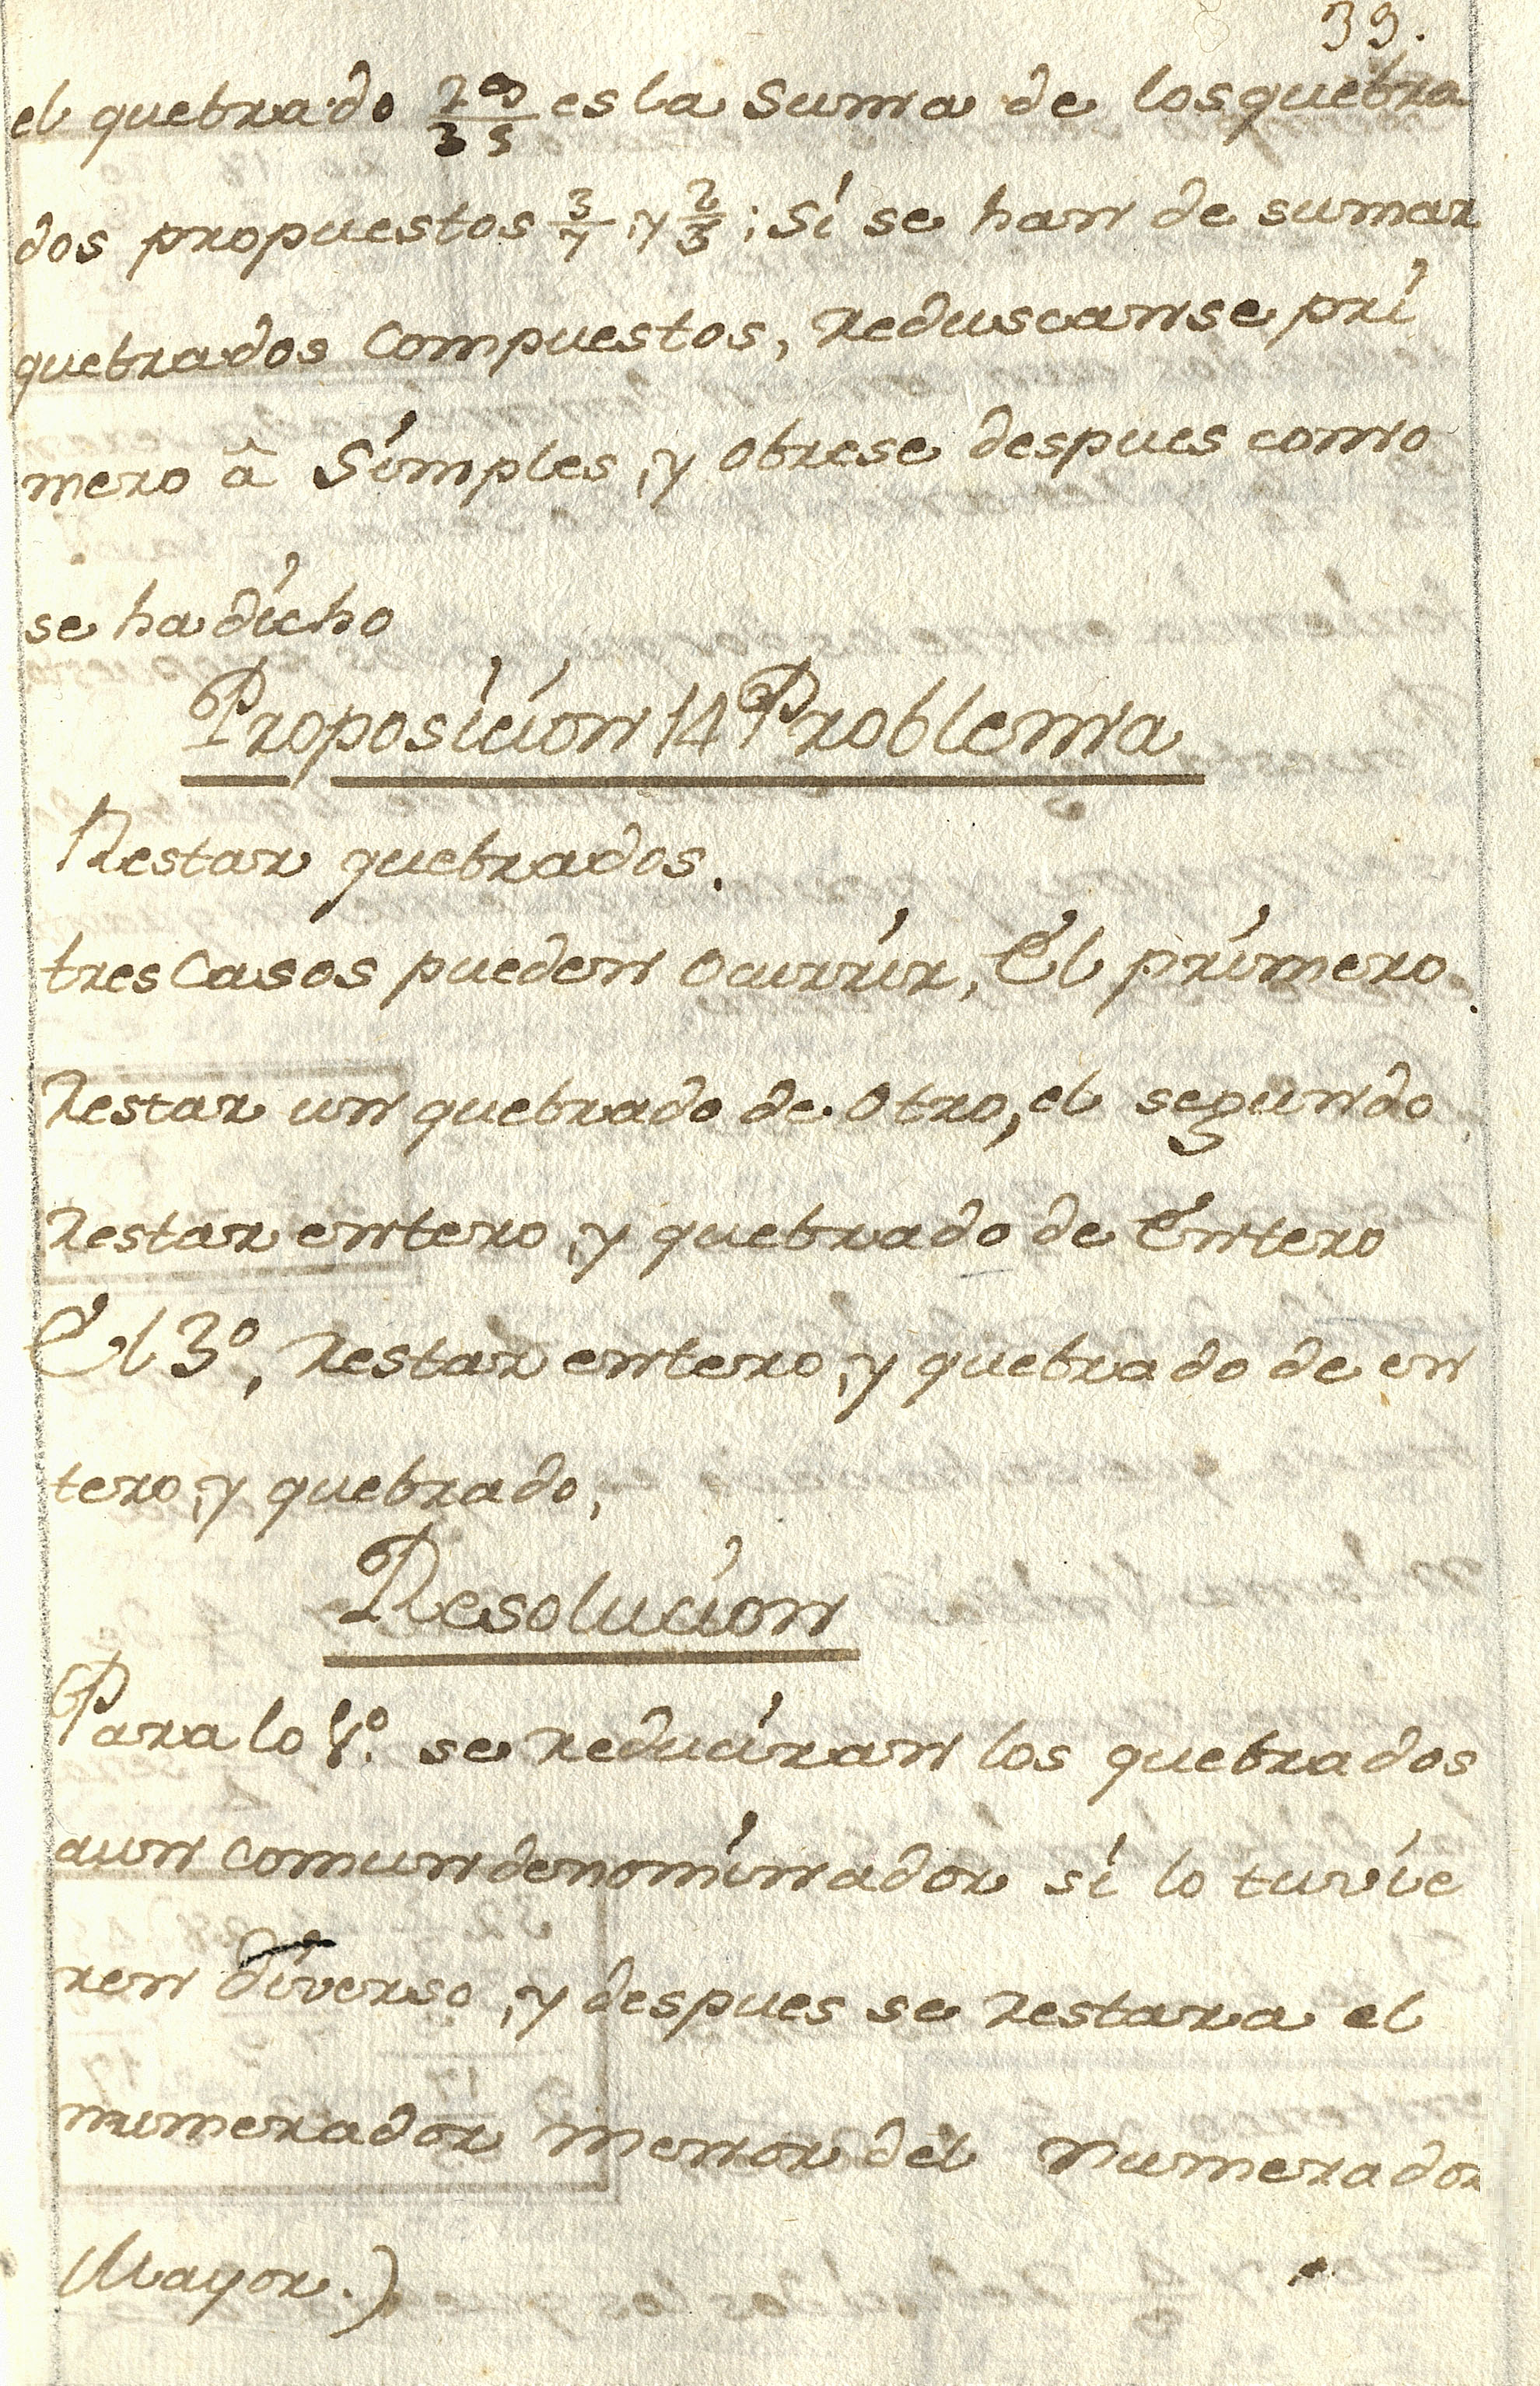 39.
el quebrado 29/35 es la Suma de los quebra
dos propuestos 3/7 y 2/3; Si se han de sumar
quebrados Compuestos, Reduscanse pri
mero â Simples, y obrese despues como
se ha dicho
Proposicion 14 Problema
Restar quebrados.
tres Casos pueden Ocurrir, El primero
Restar un quebrado de Otro, el segundo
Restar entero, y quebrado de Entero
El 3º, Restar entero, y quebrado de en
tero, y quebrado,
Resolucion
Para lo 1º. se reduciran los quebrados
aun comun denominador si lo tuvie
ren diverso, y despues se Restara el
numerador menor del numerador
Mayor.)